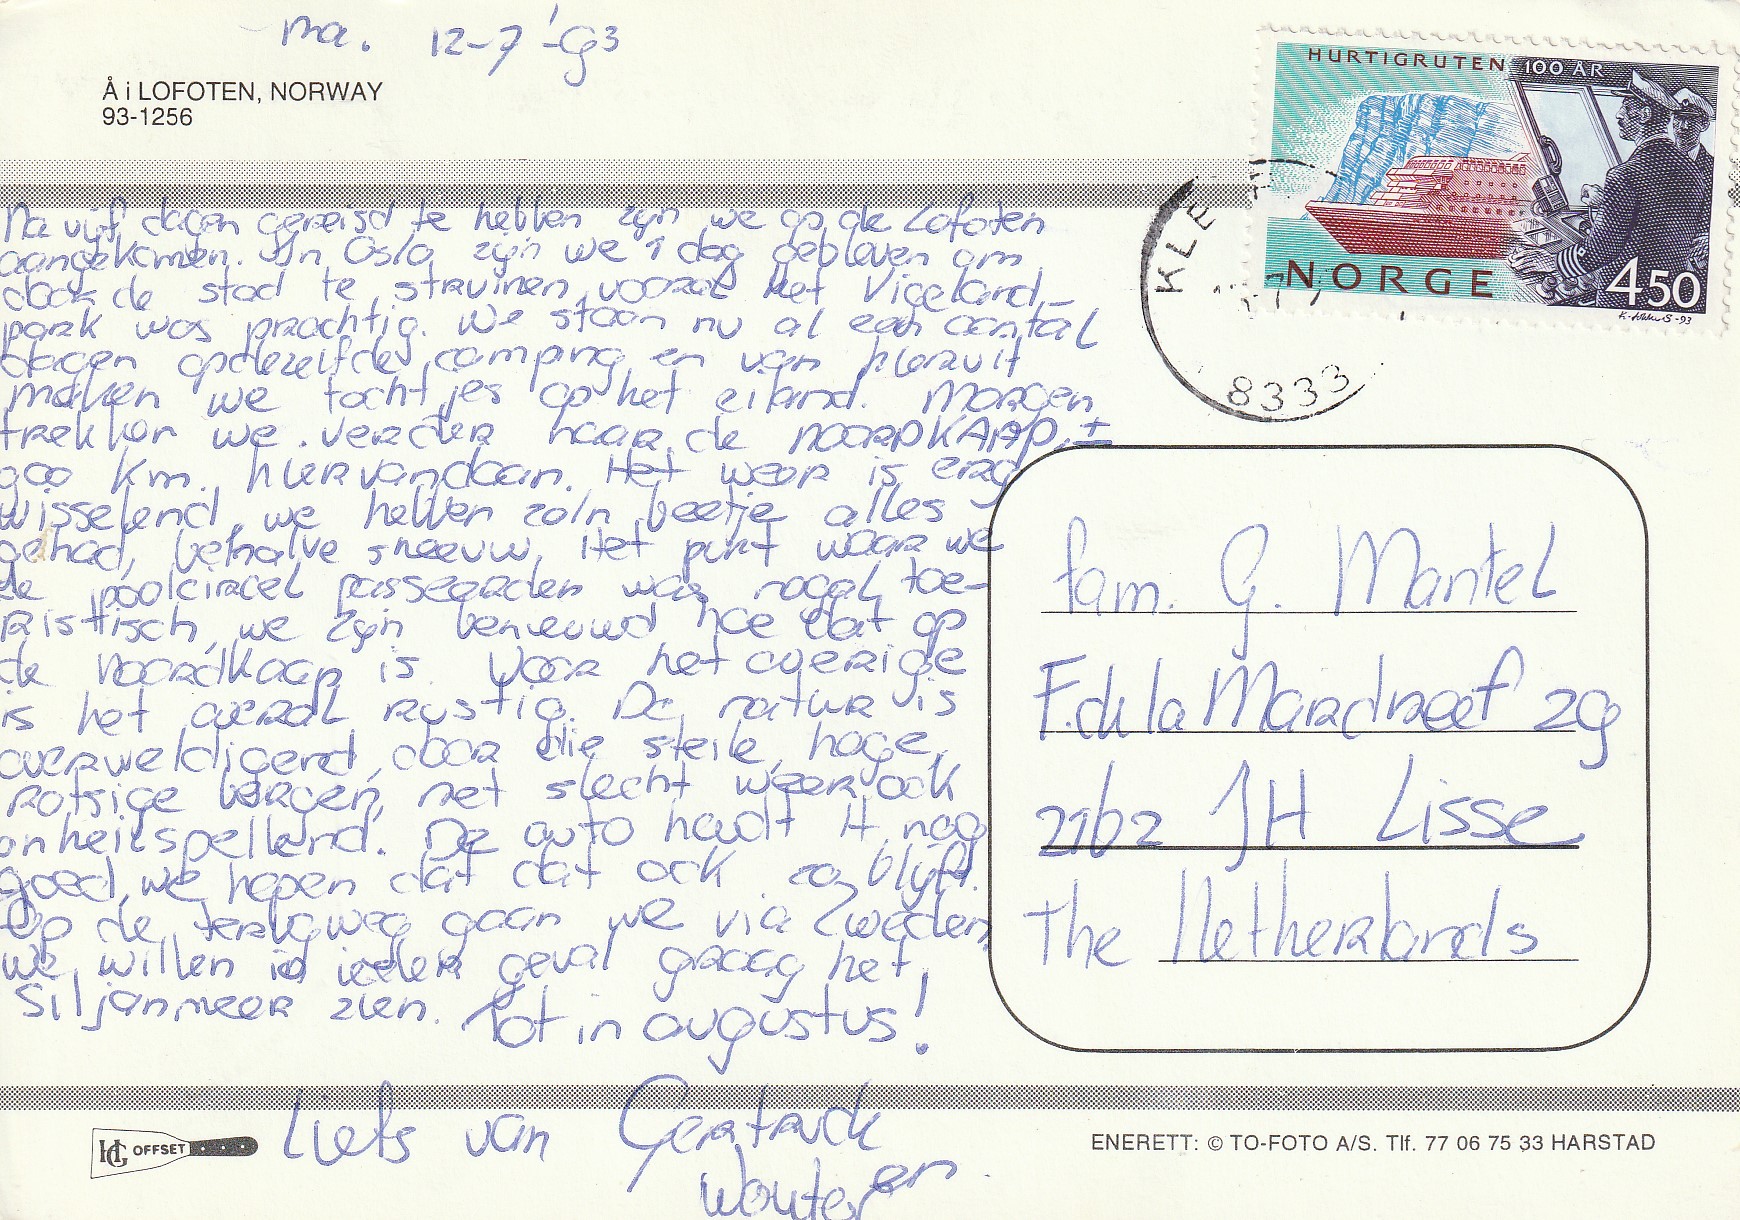 ma. 12-7-'93
Å i LOFOTEN, NORWAY
93-1256
HURTIGRUTEN 100 ÅR
NORGE 450
KLE
8333
Na vijf dagen gereisd te hebben zijn we op de Lofoten
aangekomen. In Oslo zijn we 1 dag gebleven om
door de stad te struinen, vooral het Vigeland-
park was prachtig. We staan nu al een aantal
dagen op dezelfde camping en van hieruit
maken we tochtjes op het eiland. Morgen
trekken we verder naar de NOORDKAAP, ±
900 km. hiervandaan. Het weer is erg
wisselend, we hebben zo'n beetje alles
gehad, behalve sneeuw. Het punt waar we
de poolcirkel passeerden was nogal toe-
ristisch, we zijn benieuwd hoe dat op
de Noordkaap is. Voor het overige
is het overal rustig. De natuur is
overweldigend, door die steile, hoge,
rotsige bergen, met slecht weer ook
onheilspellend. De auto houdt 't nog
goed, we hopen dat dat ook zo blijft.
Op de terugweg gaan we via Zweden,
we willen in ieder geval graag het
Siljanmeer zien. Tot in augustus!
Liefs van Geertrude
en
Wouter
fam. G. Mantel
F. de la Mardreef 29
2162 JH Lisse
The Netherlands
HG OFFSET
ENERETT: © TO-FOTO A/S. Tlf. 77 06 75 33 HARSTAD